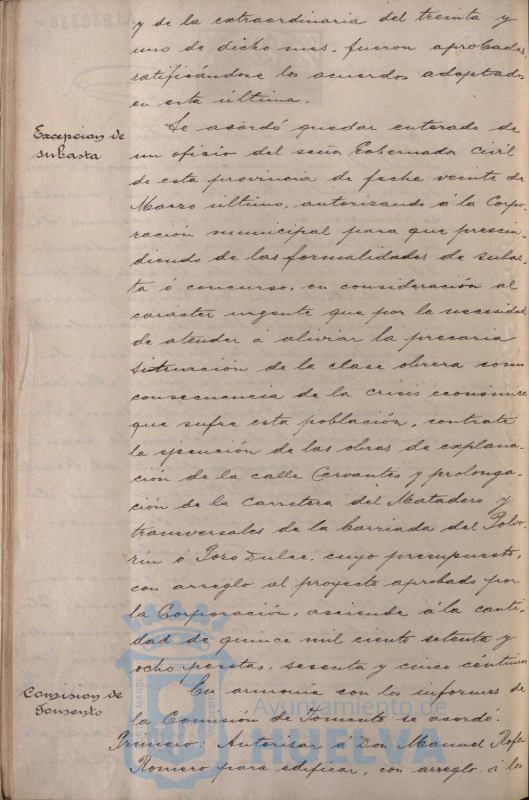 y de la extraordinaria del treinta y
uno de dicho mes, fueron aprobadas,
ratificándose los acuerdos adoptados
en esta última.
Excepcion de
subasta
Se acordó quedar enterado de
un oficio del señor Gobernador Civil
de esta provincia de fecha veinte de
Marzo último, autorizando á la Corpo-
ración municipal para que prescin-
diendo de las formalidades de subas-
ta ó concurso, en consideración al
carácter urgente que por la necesidad
de atender á aliviar la precaria
situación de la clase obrera como
consecuencia de la crisis económica
que sufre esta población, contrate
la ejecución de las obras de explana-
ción de la calle Cervantes y prolonga-
ción de la Carretera del Matadero y
transversales de la barriada del Polvo-
rin ó Poro Dulce, cuyo presupuesto,
con arreglo al proyecto aprobado por
la Corporación, asciende á la canti-
dad de quince mil ciento setenta y
ocho pesetas, sesenta y cinco céntimos
Comision de
Fomento
En armonía con los informes de
la Comisión de Fomento se acordó:
Primero: Autorizar a Don Manuel Rofa
Romero para edificar, con arreglo á los
Ayuntamiento de
HUELVA